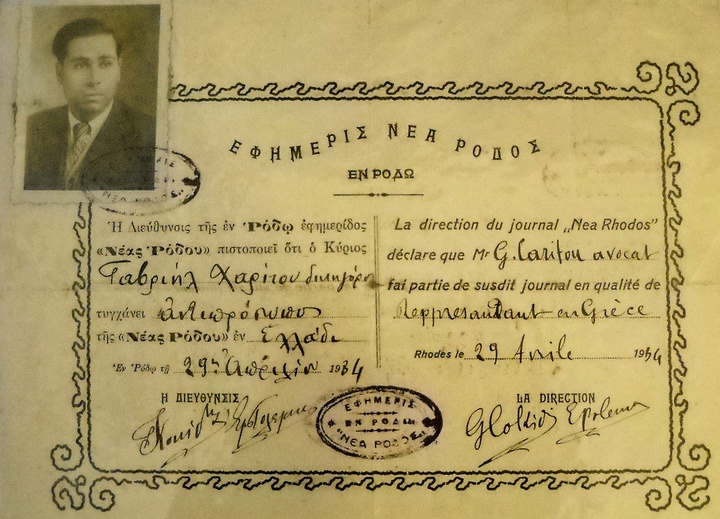 ΝΕΑ ΡΟΔΟΣ
ΕΦΗΜΕΡΙΣ ΝΕΑ ΡΟΔΟΣ
ΕΝ ΡΟΔΩ
Ἡ Διεύθυνσις τῆς ἐν Ῥόδῳ ἐφημερίδος
«Νέας Ῥόδου» πιστοποιεῖ ὅτι ὁ Κύριος
Γαβριήλ Χαρίτου δικηγόρος
τυγχάνει ἀντιπρόσωπος
τῆς «Νέας Ῥόδου» ἐν Ἑλλάδι
Ἐν Ῥόδῳ τῇ 29ῃ Ἀπριλίου 1934
Η ΔΙΕΥΘΥΝΣΙΣ
La direction du journal „Nea Rhodos"
déclare que Mr G. Caritou avocat
fai partie de susdit journal en qualité de
Représentant en Grèce
Rhodes le 29 Avrile 1934
LA DIRECTION
ΕΦΗΜΕΡΙΣ
ΕΝ ΡΟΔΩ
ΝΕΑ ΡΟΔΟΣ